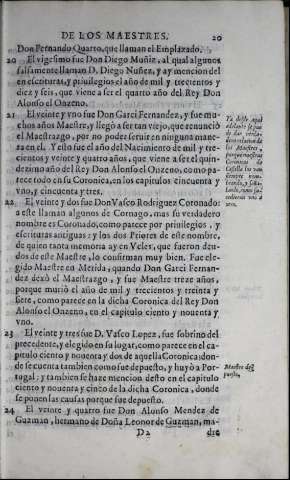 DE LOS MAESTRES. 20
Don Fernando Quarto, que llaman el Emplazado.
20 El vigesimo fue Don Diego Muñiz, al qual algunos
falsamente llaman D. Diego Nuñez, y ay mencion del
en escrituras, y priuilegios el año de mil y trecientos y
diez y seis, que viene a ser el quarto año del Rey Don
Alonso el Onzeno.
21 El veinte y vno fue Don Garci Fernandez, y fue mu
chos años Maestre, y llegò a ser tan viejo, que renunciò
el Maestrazgo, por no poder seruir en ninguna mane-
ra en el. Y esto fue el año del Nacimiento de mil y tre-
cientos y veinte y quatro años, que viene a ser el quin-
dezimo año del Rey don Alonso el Onzeno, como pa-
rece todo en su Coronica, en los capitulos cincuenta y
vno, y cincuenta y tres.
Ya desde aqui
adelante se pue
de dar verda-
dera relacion de
los Maestres,
porque nuestras
Coronicas de
Castilla los van
siempre nom-
brando, y seña-
lando, como su-
cedieron vno a
vno.
22 El veinte y dos fue Don Vasco Rodriguez Coronado:
a este llaman algunos de Cornago, mas su verdadero
nombre es Coronado, como parece por priuilegios, y
escrituras antiguas: y los dos Priores de este nombre,
de quien tanta memoria ay en Veles, que fueron deu-
dos de este Maestre, lo confirman muy bien. Fue ele-
gido Maestre en Merida, quando Don Garci Fernan-
dez dexò el Maestrazgo, y fue Maestre treze años,
porque murio el año de mil y trecientos y treinta y
siete, como parece en la dicha Coronica del Rey Don
Alonso el Onzeno, en el capitulo ciento y nouenta y
vno.
23 El veinte y tres fue D. Vasco Lopez, fue sobrino del
precedente, y elegido en su lugar, como parece en el ca-
pitulo ciento y nouenta y dos de aquella Coronica: don-
de se cuenta tambien como fue depuesto, y huyò a Por-
tugal: y tambien se haze mencion desto en el capitulo
ciento y nouenta y cinco de la dicha Coronica, donde
se ponen las causas porque fue depuesto.
Maestre de-
puesto.
24 El veinte y quatro fue Don Alonso Mendez de
Guzman, hermano de Doña Leonor de Guzman, ma-
D 2 dre